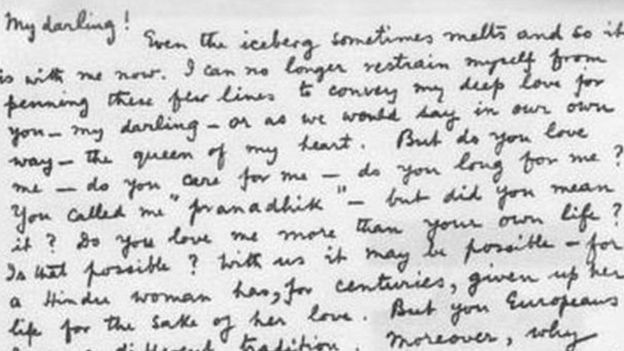 My darling!
Even the iceberg sometimes melts and so it
is with me now. I can no longer restrain myself from
penning these few lines to convey my deep love for
you – my darling – or as we would say in our own
way – the queen of my heart. But do you love
me – do you care for me – do you long for me ?
You called me "pranadhik" – but did you mean
it ? Do you love me more than your own life ?
Is that possible ? With us it may be possible – for
a Hindu woman has, for centuries, given up her
life for the sake of her love. But you Europeans
different tradition. Moreover, why